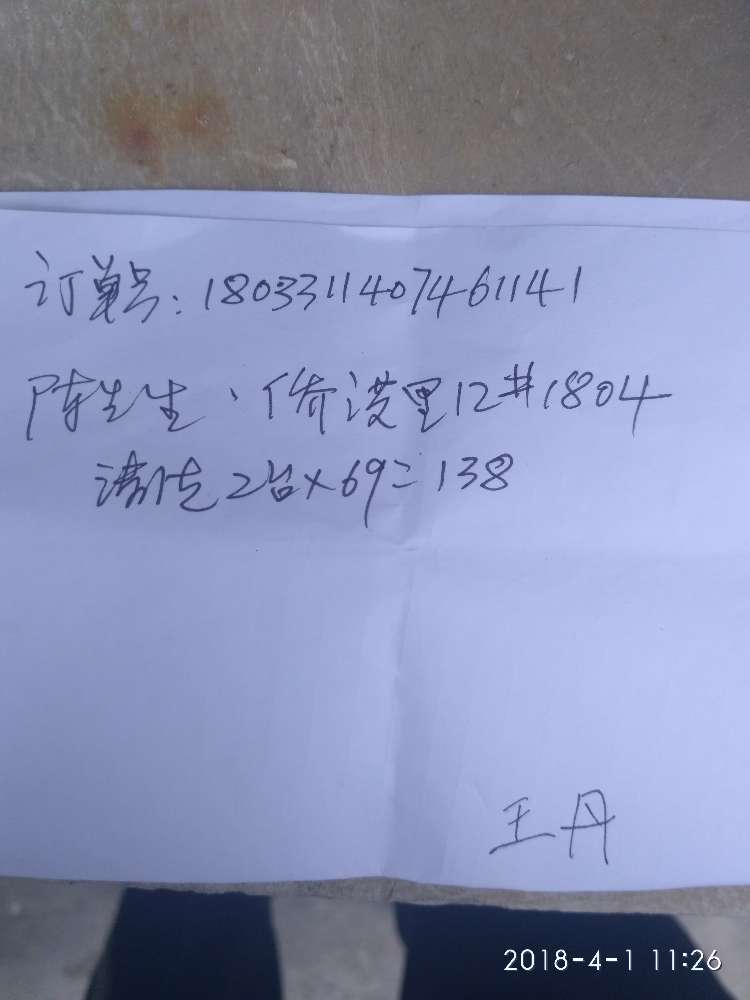 订单号:1803311407461141
陈先生、侨滨里12#1804
清洗2台×69=138
王丹
2018-4-1 11:26